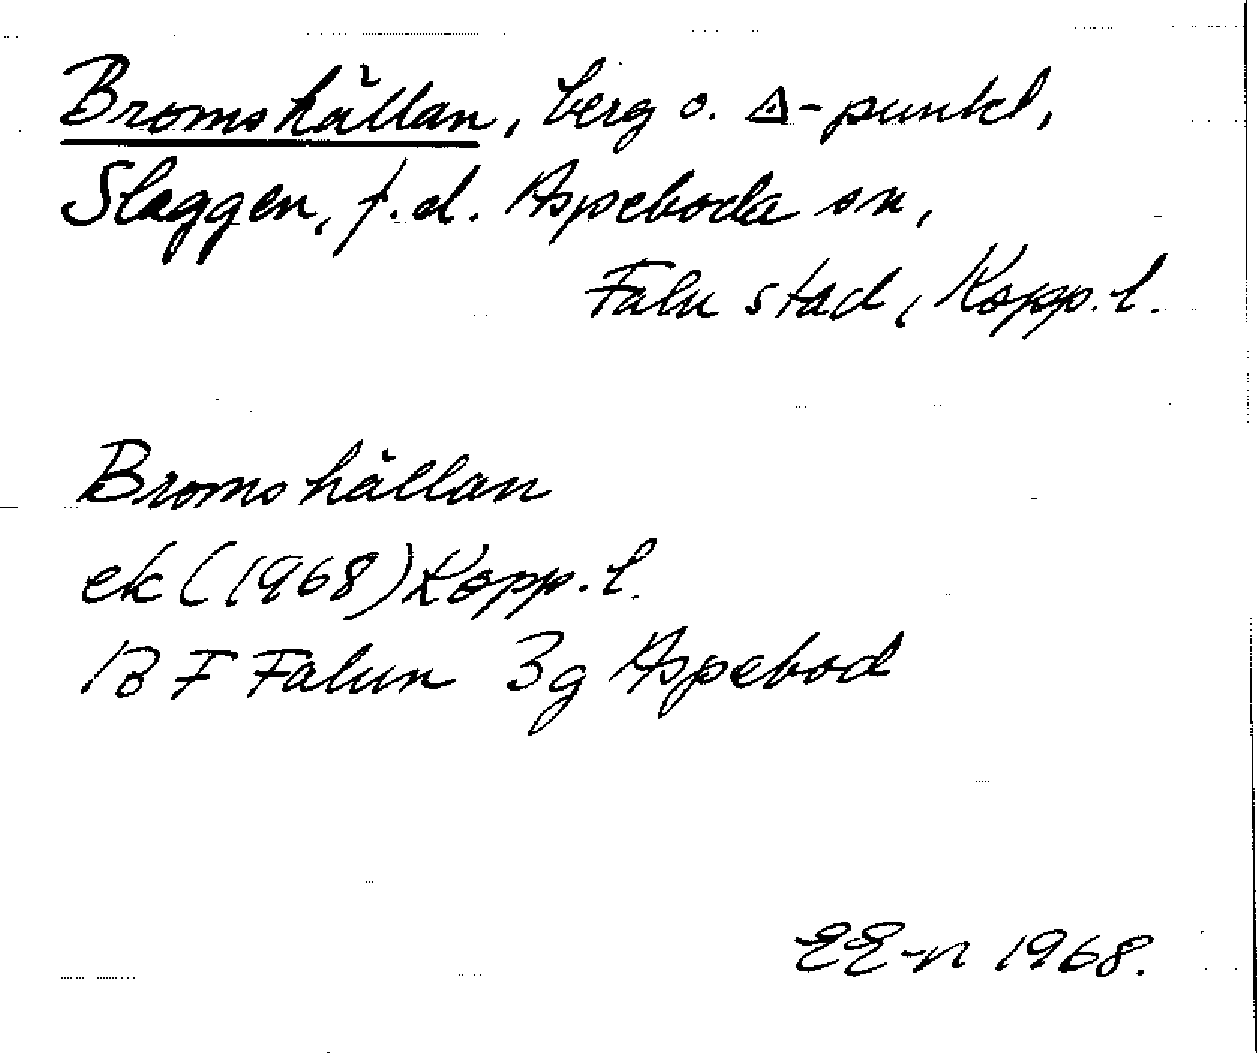 Bromshällan, berg o. △-punkt,
Slaggen, f.d. Aspeboda sn,
Falu stad, Kopp.l.
Bromshällan
ek (1968) Kopp.l.
13 F Falun 3g Aspebod
EE-n 1968.